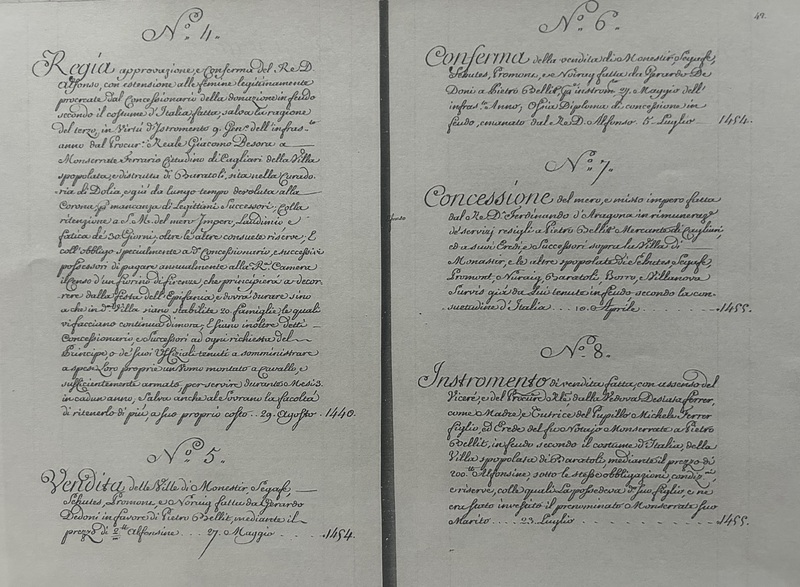 N.º 4.
Regia approvazione, e Conferma del Re D.
Alfonso, con estensione alle femine legittimamente
procreate dal Concessionario della donazione in feudo
secondo il costume d'Italia fatta, salva la ragione
del terzo, in Virtù d'Istromento 9. Gen.º dell'infras.to
anno dal Procur.e Reale Giacomo Desora a
Monserrate Ferrario Cittadino di Cagliari della Villa
spopolata, e distrutta di Baratoli, sita nella Curado-
ria di Dolia, e già da lungo tempo devoluta alla
Corona p mancanza di Legittimi Successori: colla
ritenzione a S. M. del mero Impero, Laudimio e
fatica de' 30. Giorni, oltre le altre consuete riserve, E
coll'obbligo specialmente a d.º Concessionario, e successivi
possessori di pagare annualmente alla R.a Camera
il censo d'un fiorino di Firenze, che principierà a decor-
rere dalla festa dell'Epifania, e dovrà durare sino
a che in d.a Villa siano stabilite 20. famiglie, le quali
vi facciano continua dimora; E siano inoltre detti
Concessionario, e Successori ad ogni richiesta del
Principe, o de' suoi Uffiziali tenuti a somministrare
a spese loro proprie un Uomo montato a cavallo, e
sufficientemente armato, per servire durante Mesi 3.
in cadun anno, salva anche al Sovrano la facoltà
di ritenerlo di più, a suo proprio costo .. 29. Agosto . 1440.
N.º 5.
Vendita delle Ville di Monestir, Segafe,
Sehutes, Promone, e Noraig fatta da Gerardo
Dedoni in favore di Pietro Bellit, mediante il
prezzo di 2.m Alfonsine .... 27. Maggio ..... 1454.
42.
N.º 6.
Conferma della vendita di Monestir, Segafe,
Sehutes, Promone, e Noraig fatta da Gerardo De
Doni a Pietro Bellit p instrom.to 27. Maggio dell'
infras.to Anno, Ossia Diploma di concessione in
feudo, emanato dal Re D. Alfonso 5. Luglio 1454.
N.º 7.
Concessione del mero, e misto impero fatta
dal Re D.n Ferdinando d'Aragona in rimuneraz.e
de' servizj resigli a Pietro Bellit Mercante di Cagliari,
ed a suoi Eredi e Successori sopra la Villa di
Monastir, e le altre spopolate di Sehutes, Segafe,
Promont, Nuraig, Baratoli, Borro, e Villanova
Survis già da Lui tenute in feudo secondo la con-
suetudine d'Italia ... 10. Aprile ........ 1455.
N.º 8.
Instromento di vendita fatta, con assenso del
Vicerè, e del Procur.e R.le dalla Vedova Desiata Ferrer,
come Madre, e Tutrice del Pupillo Michele Ferrer
figlio, ed Erede del fu Notajo Monserrate a Pietro
Bellit, in feudo secondo il costume d'Italia, della
Villa spopolata di Baratoli, mediante il prezzo di
200.tte Alfonsine, sotto le stesse obbligazioni, condiz.ni,
e riserve, colle quali La possedeva d.º suo figlio, e ne
era stato investito il prenominato Monserrate suo
Marito .... 23. Luglio ........ 1455.